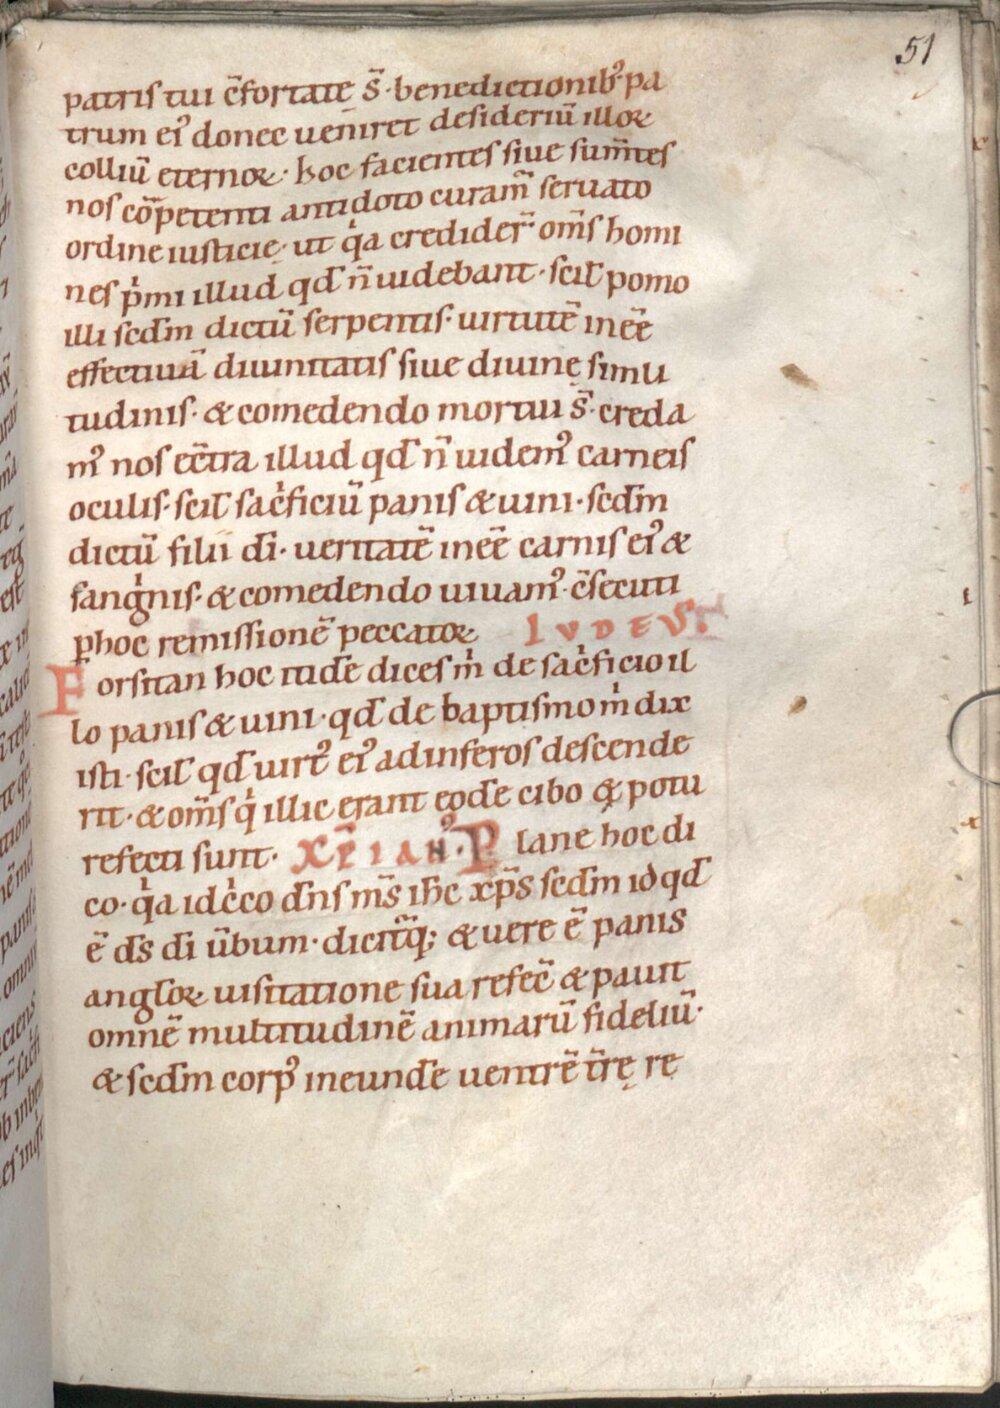 51
patris tui c̄fortate s̄· benedictionib᷒ pa
trum ei᷒ donec ueniret desideriū illoꝝ
colliū eternoꝝ· hoc facientes siue sum̄tes
nos cōpetenti antidoto curam̄ seruato
ordine iusticie· ut qͥa credider̄ om̄s homi
nes pͥmi illud qd̄ n̄ uidebant· scil̄ pomo
illi scd̄m dictū serpentis· uirtutē inēē
effectiuā diuinitatis siue diuinę simli
tudinis· & comedendo mortui s̄· creda
m᷒ nos ec̄tra illud qd̄ n̄ uidem᷒ carneis
oculis· scil̄ sac̍ficiū panis & uini· scd̄m
dictū filii dī· ueritatē inēē carnis ei᷒ &
sangͥnis· & comedendo uiuam᷒ c̄secuti
ꝑhoc remissionē peccatoꝝ IVDEVS·
Forsitan hoc itid̄e dices m̍ de sac̍ficio il
lo panis & uini· qd̄ de baptismo m̍ dix
isti· scil̄ qd̄ uirt᷒ ei᷒ ad inferos descende
rit· & om̄s qͥ illic erant eod̄e cibo & potu
refecti sunt· XP̄IAN᷒· Plane hoc di
co· qͥa idc̍co dn̄s m̄s ih̄c xp̄s scd̄m id qd̄
ē d̄s dī ūbum· dicit̄q̄; & uere ē panis
angl̄oꝝ uisitatione sua refec̄ & pauit
omnē multitudinē animarū fideliū·
& scd̄m corp᷒ ineund̄e uentrē t̄rę re